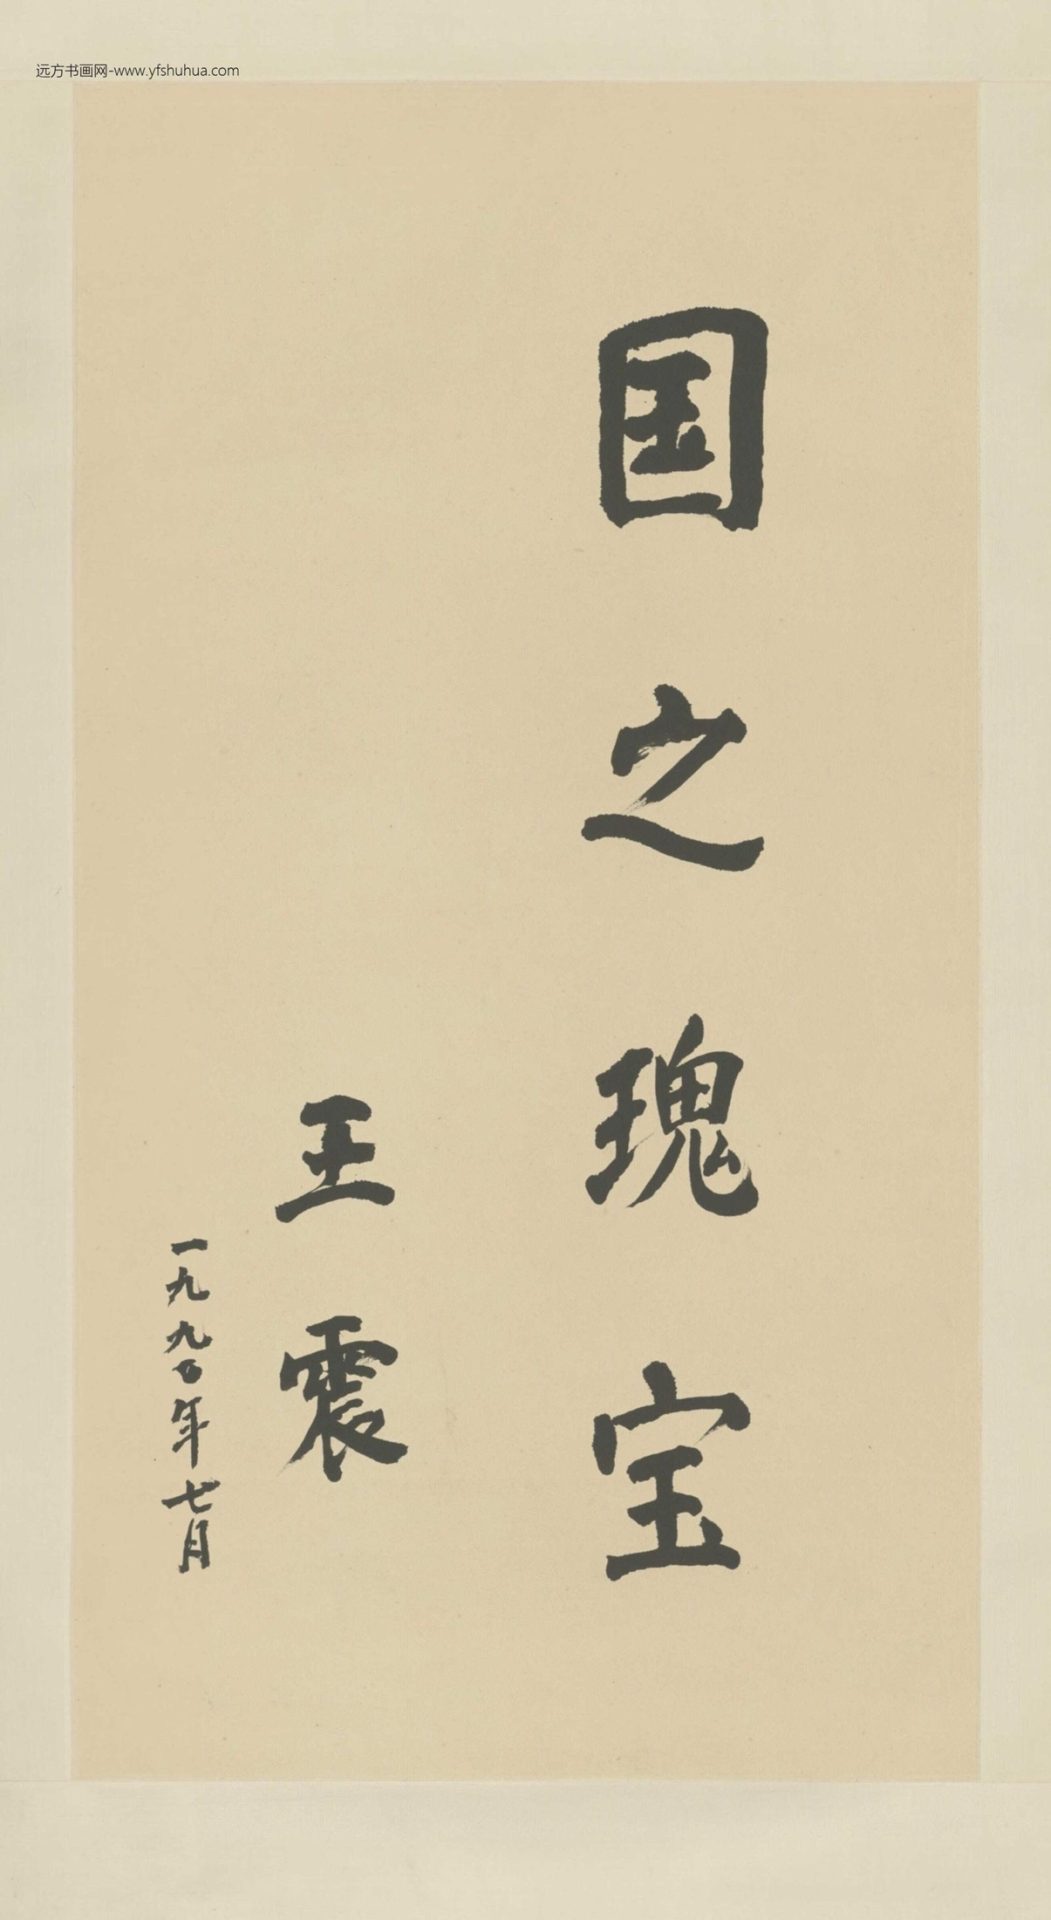 远方书画网-www.yfshuhua.com
国之瑰宝
王震
一九九〇年七月